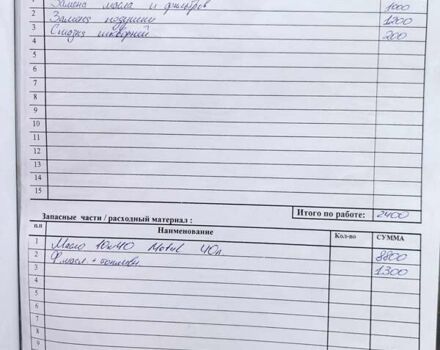 Замена масла и фильтров 1000
2 Замена подушки 1200
3 Смазка шкворней 200
4
5
6
7
8
9
10
11
12
13
14
15
Итого по работе: 2400
Запасные части / расходный материал :
п.п Наименование Кол-во СУММА
1 Масло 10w40 Motul 40л 8800
2 Ф. масл. + топливн. 1300
3
4
5
6
7
8
9